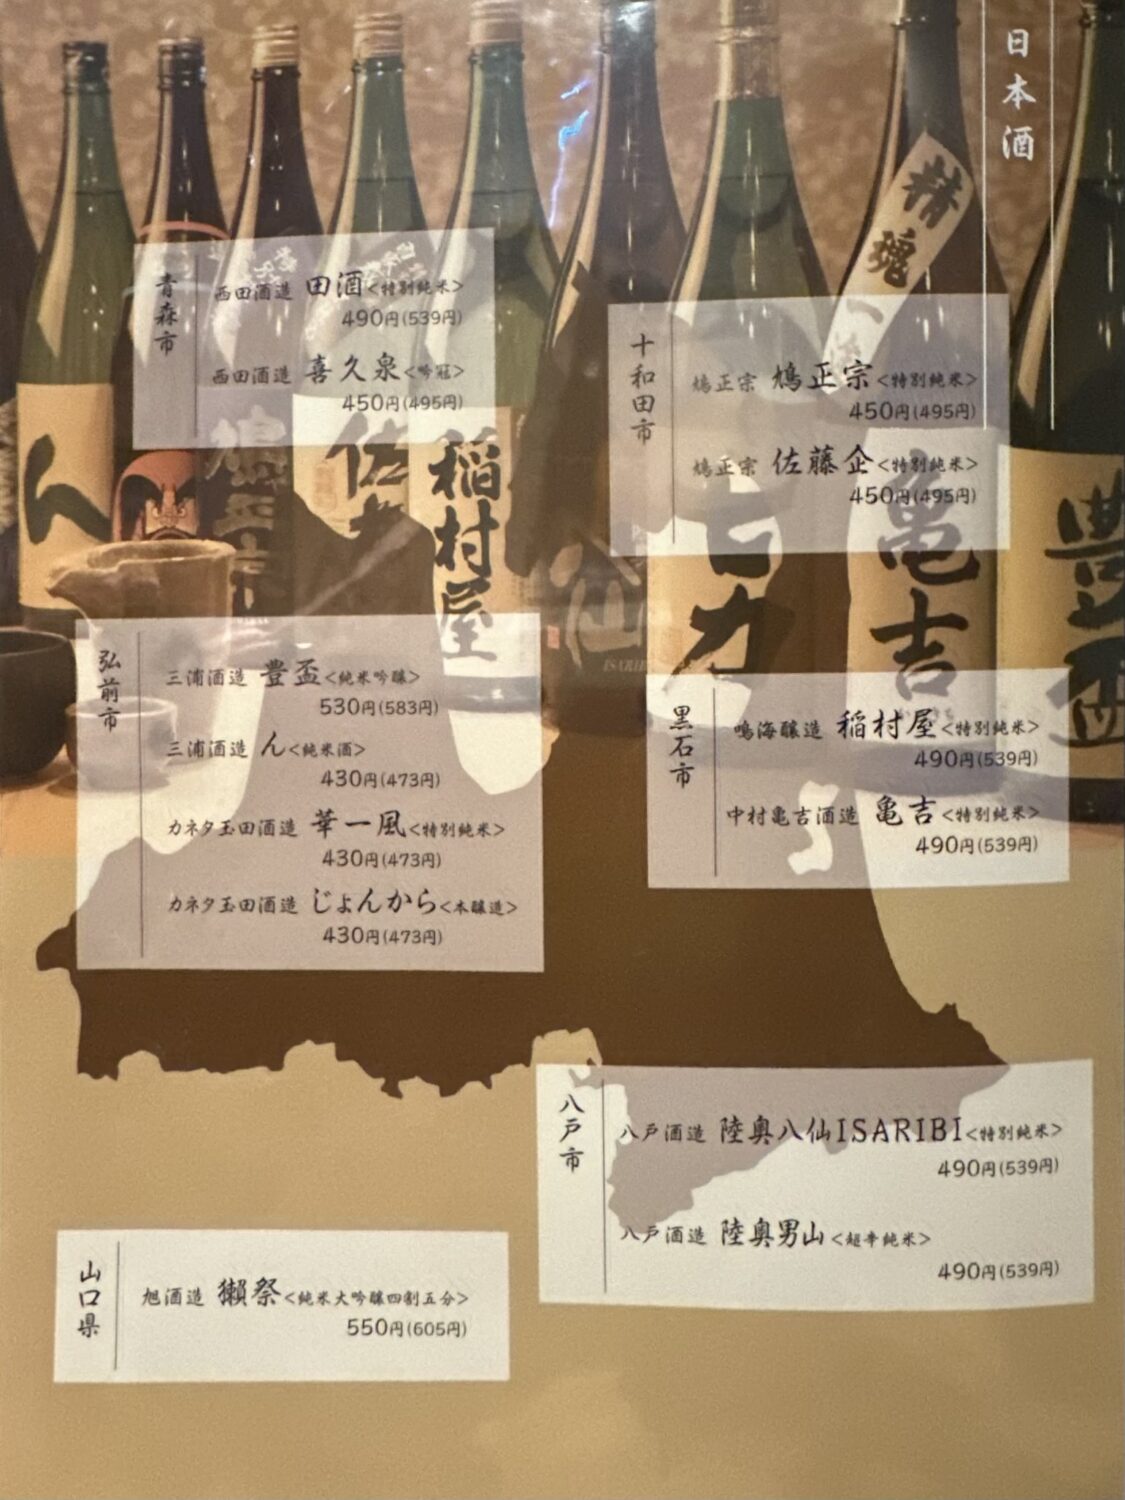 日本酒
精魂一
ん
鳩正宗
佐
稲村屋
亀吉
豊盃
ISARIBI
青森市
西田酒造 田酒<特別純米>
490円(539円)
西田酒造 喜久泉<吟冠>
450円(495円)
十和田市
鳩正宗 鳩正宗<特別純米>
450円(495円)
鳩正宗 佐藤企<特別純米>
450円(495円)
弘前市
三浦酒造 豊盃<純米吟醸>
530円(583円)
三浦酒造 ん<純米酒>
430円(473円)
カネタ玉田酒造 華一風<特別純米>
430円(473円)
カネタ玉田酒造 じょんから<本醸造>
430円(473円)
黒石市
鳴海醸造 稲村屋<特別純米>
490円(539円)
中村亀吉酒造 亀吉<特別純米>
490円(539円)
八戸市
八戸酒造 陸奥八仙ISARIBI<特別純米>
490円(539円)
八戸酒造 陸奥男山<超辛純米>
490円(539円)
山口県
旭酒造 獺祭<純米大吟醸四割五分>
550円(605円)